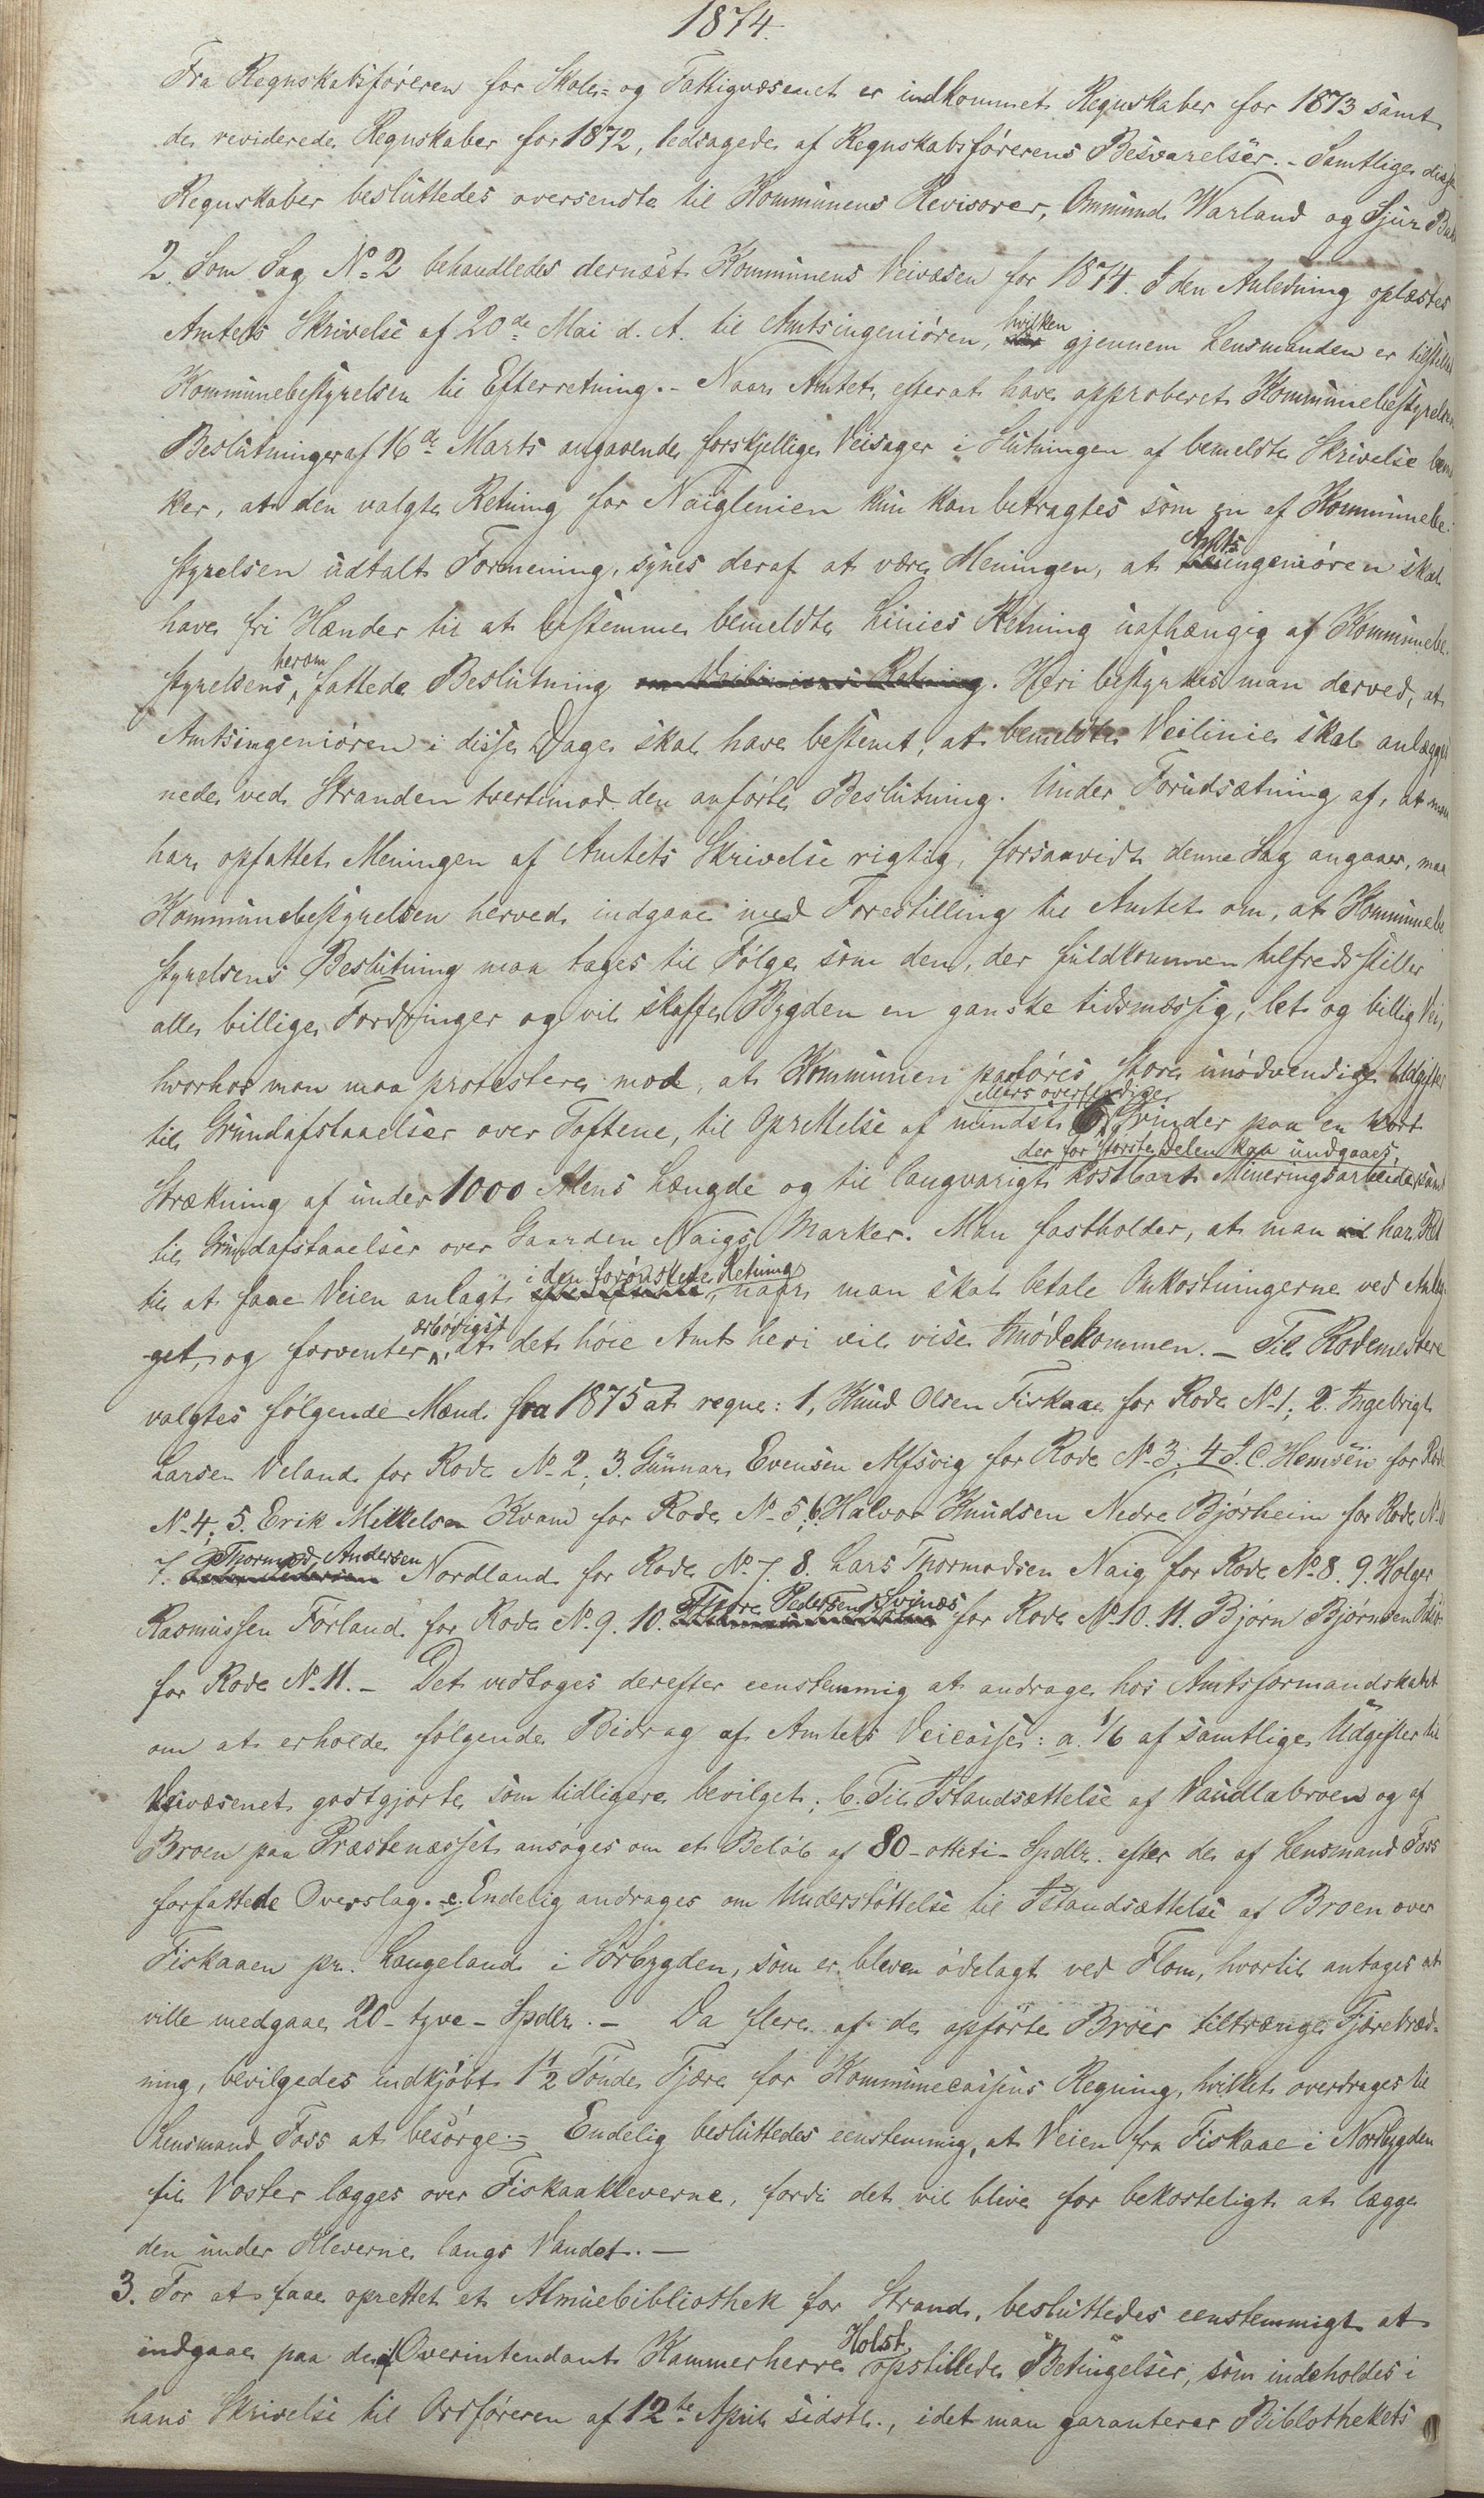 1874.
Fra Regnskabsføreren for Skole- og Fattigvæsenet er indkommet Regnskaber for 1873 samt
de reviderede Regnskaber for 1872, ledsagede af Regnskabsførerens Besvarelser. - Samtlige disse
Regnskaber besluttedes oversendte til Kommunens Revisorer, Ommund Warland og Sjur
2. Som Sag No 2 behandledes dernæst Kommunens Veivæsen for 1874. I den Anledning oplæstes
Amtets Skrivelse af 20de Mai d. A. til Amtsingeniøren, hvilken gjennem Lensmanden er tilstillet
Kommunebestyrelsen til Efterretning. - Naar Amtet, efterat have approberet Kommunebestyrelsens
Beslutninger af 16de Marts angaaende forskjellige Veisager i Slutningen af bemeldte Skrivelse bemær
ker, at den valgte Retning for Naiglenien kun kan betragtes som en af Kommunebe-
styrelsen udtalt Formening, synes deraf at være Meningen, at Amtsingeniøren skal
have fri Hænder til at bestemme bemeldte Linies Retning uafhængig af Kommunebe-
styrelsens herom fattede Beslutning om Veiliniens Retning. Heri bestyrkes man derved, at
Amtsingeniøren i disse Dage skal have bestemt, at bemeldte Veilinie skal anlægges
nede ved Stranden tvertimod den anførte Beslutning. Under Forudsætning af, at man
har opfattet Meningen af Amtets Skrivelse rigtig, forsaavidt denne Sag angaaer, maa
Kommunebestyrelsen herved indgaae med Forestilling til Amtet om, at Kommunebe
styrelsens Beslutning maa tages til Følge som den, der fuldkommen tilfredsstiller
alle billige Fordringer og vil skaffe Bygden en ganske tidsmæssig, let og billig Vei,
hvorhos man maa protestere mod, at Kommunen paaføres store unødvendige Udgifter
til Grundafstaaelser over Toftene, til Oprettelse af mindst 6 ellers overflødige Grinder paa en kort
Strækning af under 1000 Alens Længde og til langvarigt kostbart Mineringsarbeide, der for største Delen kan undgaaes, samt
til Grundafstaaelser over Gaarden Naigs Marker. Man fastholder, at man har Ret
til at faae Veien anlagt i den forønskede Retning, naar man skal betale Omkostningerne ved Anlæg-
get, og forventer ærbødigst, at det høie Amt heri vil vise Imødekommen. - Til Rodemestere
valgtes følgende Mænd fra 1875 at regne: 1, Knud Olsen Fiskaae for Rode No 1; 2. Ingebrigt
Larsen Veland for Rode No 2; 3. Gunnar Evensen Alfsvig for Rode No 3; 4 J. C. Hemsen for Rode
No 4, 5. Erik Mikkelsen Kvam for Rode No 5; 6. Halvor Knudsen Nedre Bjørheim for Rode No 6
7. Thormod Andersen Nordland for Rode No 7. 8. Lars Thormodsen Naig for Rode No 8. 9. Holger
Rasmussen Førland for Rode No 9. 10. Thore Pedersen Svinæs for Rode No 10. 11. Bjørn Bjørnsen
for Rode No 11. - Det vedtoges derefter eenstemmig at andrage hos Amtsformandskabet
om at erholde følgende Bidrag af Amtets Veicasse: a. 1/6 af samtlige Udgifter til
Veivæsenet godtgjorte som tidligere bevilget; b. Til Istandsættelse af Vaudlabroen og af
Broen paa Præstenæsset ansøges om et Beløb af 80 - otteti - Spdlr. efter de af Lensmand Foss
forfattede Overslag. c. Endelig andrages om Understøttelse til Istandsættelse af Broen over
Fiskaaen pr. Langeland i Sørbygden, som er bleven ødelagt ved Flom, hvortil antages at
ville medgaae 20 - tyve - Spdlr. - Da flere af de opførte Broer tiltrænge Tjærebræd-
ning, bevilgedes indkjøbt 1 1/2 Tønde Tjære for Kommunecassens Regning, hvilket overdrages til
Lensmand Foss at besørge. - Endelig besluttedes eenstemmig, at Veien fra Fiskaae i Nordbygden
til Voster lægges over Fiskaakleverne, fordi det vil blive for bekosteligt at lægge
den under Kleverne langs Vandet. -
3. For at faae oprettet et Almuebibliothek for Strand, besluttedes eenstemmigt at
indgaae paa de af Overintendant Kammerherre Holst opstillede Betingelser, som indeholdes i
hans Skrivelse til Ordføreren af 12te April sidstl., idet man garanterer Bibliothekets